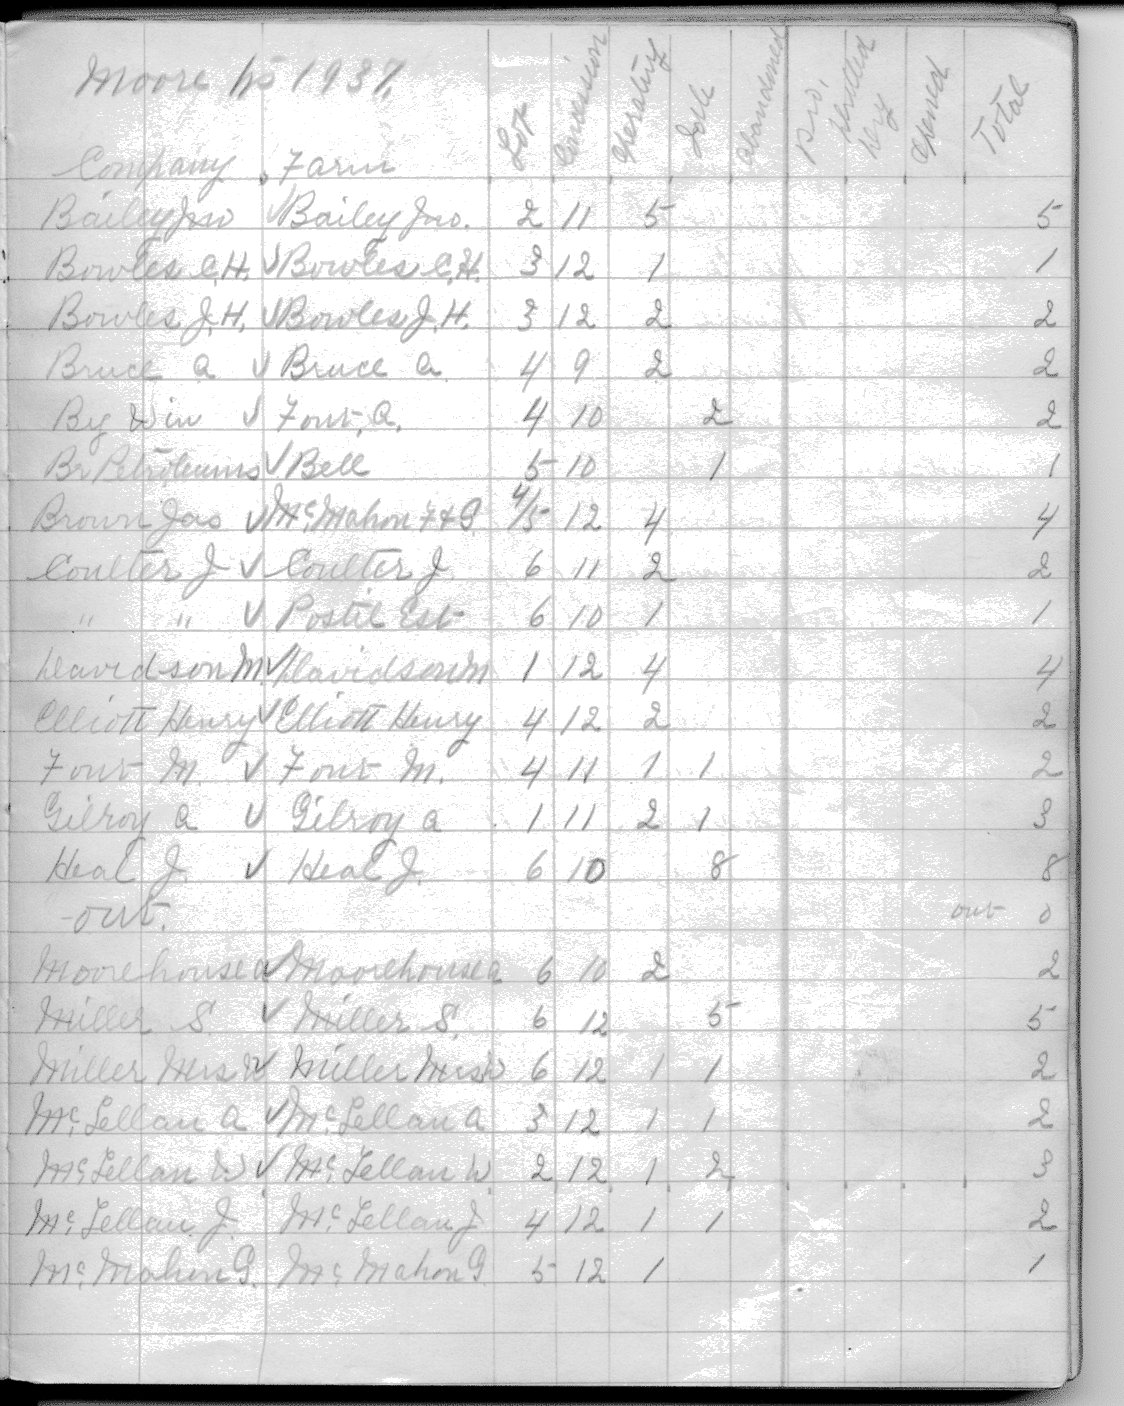 Moore tp 1937.
Company Farm Lot Concession Operating Idle Abandoned No. drilled Wells Cleaned Total
Bailey Jno ✓ Bailey Jno. 2 11 5 5
Bowles C.H. ✓ Bowles C.H. 3 12 1 1
Bowles J.H. ✓ Bowles J.H. 3 12 2 2
Bruce A ✓ Bruce A 4 9 2 2
Big Win ✓ Font, A. 4 10 2 2
Br Petroleums ✓ Bell 5 10 1 1
Brown Jas ✓ Mc.Mahon F & G. 4/5 12 4 4
Coulter J ✓ Coulter J. 6 11 2 2
" " ✓ Postil Est 6 10 1 1
Davidson M. ✓ Davidson M 1 12 4 4
Elliott Henry ✓ Elliott Henry 4 12 2 2
Font M. ✓ Font M. 4 11 1 1 2
Gilroy A ✓ Gilroy A 1 11 2 1 3
Heal J. ✓ Heal J. 6 10 8 8
-out. out 0
Moorehouse A ✓ Moorehouse A 6 10 2 2
Miller S. ✓ Miller S. 6 12 5 5
Miller Mrs W ✓ Miller Mrs W 6 12 1 1 2
Mc.Lellan A ✓ Mc.Lellan A 3 12 1 1 2
Mc.Lellan W ✓ Mc.Lellan W 2 12 1 2 3
Mc.Lellan J. Mc.Lellan J 4 12 1 1 2
Mc.Mahon G. Mc.Mahon G 5 12 1 1